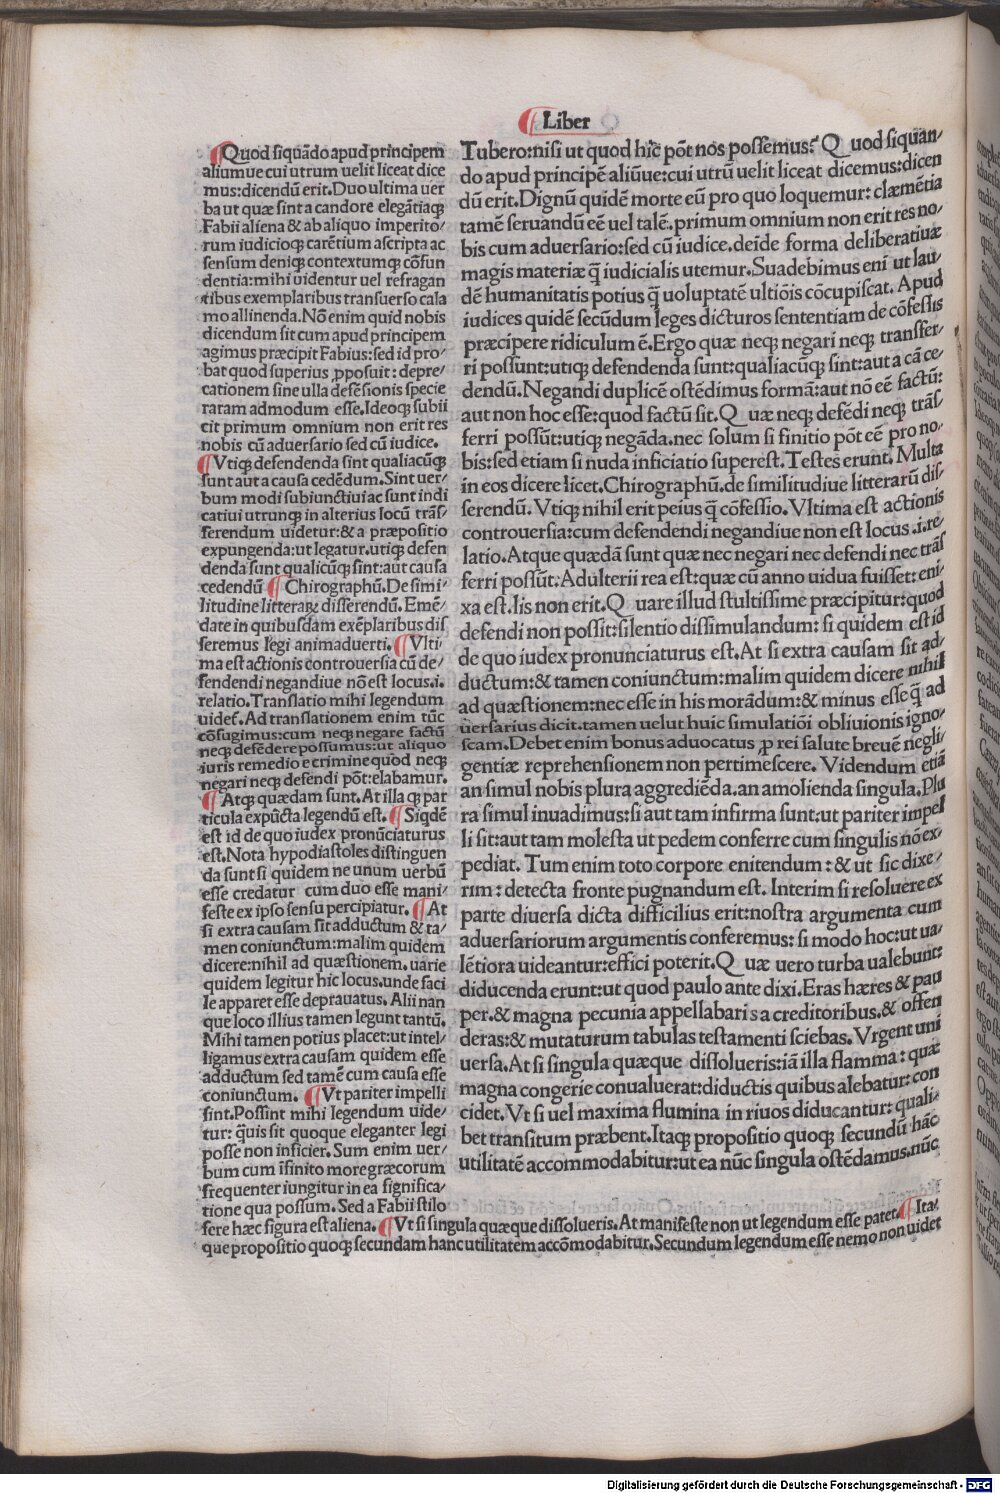 ¶ Liber
¶ Quod siquãdo apud principem
aliumue cui utrum uelit liceat dice
mus:dicendũ erit.Duo ultima uer
ba ut quæ sint a candore elegãtiaqꝫ
Fabii aliena & ab aliquo imperito/
rum iudicioqꝫ carẽtium ascripta ac
sensum deniqꝫ contextumqꝫ cõfun
dentia:mihi uidentur uel refragan
tibus exemplaribus transuerso cala
mo allinenda.Nõ enim quid nobis
dicendum sit cum apud principem
agimus præcipit Fabius:sed id pro/
bat quod superius ꝓposuit: depre/
cationem sine ulla defẽsionis specie
raram admodum esse.Ideoqꝫ subii
cit primum omnium non erit res
nobis cũ aduersario sed cũ iudice.
¶ Vtiqꝫ defendenda sint qualiacũqꝫ
sunt aut a causa cedẽdum.Sint uer/
bum modi subiunctiui ac sunt indi
catiui utrunqꝫ in alterius locũ trãs/
ferendum uidetur:& a præpositio
expungenda:ut legatur.utiqꝫ defen
denda sunt qualicũqꝫ sint:aut causa
cedendũ ¶ Chirographũ.De simi/
litudine litteraꝝ disserendũ.Emẽ/
date in quibusdam exẽplaribus dis
seremus legi animaduerti. ¶ Vlti/
ma est actionis controuersia cũ de/
fendendi negandiue nõ est locus.i.
relatio.Translatio mihi legendum
uideť.Ad translationem enim tũc
cõfugimus:cum neqꝫ negare factũ
neqꝫ defẽdere possumus:ut aliquo
iuris remedio e crimine quod neqꝫ
negari neqꝫ defendi põt:elabamur.
¶ Atqꝫ quædam sunt.At illa qꝫ par
ticula expũcta legendũ est. ¶ Siqdẽ
est id de quo iudex pronũciaturus
est.Nota hypodiastoles distinguen
da sunt si quidem ne unum uerbũ
esse credatur cum duo esse mani/
feste ex ipso sensu percipiatur. ¶ At
si extra causam sit adductum & ta/
men coniunctum:malim quidem
dicere:nihil ad quæstionem.uarie
quidem legitur hic locus.unde faci
le apparet esse deprauatus.Alii nan
que loco illius tamen legunt tantũ.
Mihi tamen potius placet:ut intel/
ligamus extra causam quidem esse
adductum sed tamẽ cum causa esse
coniunctum. ¶ Vt pariter impelli
sint.Possint mihi legendum uide/
tur: q̃uis sit quoque eleganter legi
posse non inficier.Sum enim uer/
bum cum ĩfinito more græcorum
frequenter iungitur in ea significa/
tione qua possum.Sed a Fabii stilo
fere hæc figura est aliena. ¶ Vt si singula quæque dissolueris.At manifeste non ut legendum esse patet. ¶ Ita/
que propositio quoqꝫ secundam hanc utilitatem accõmodabitur.Secundum legendum esse nemo non uidet
Tubero:nisi ut quod hic̃ põt nos possemus? Quod siquan/
do apud principẽ aliũue:cui utrũ uelit liceat dicemus:dicen
dũ erit.Dignũ quidẽ morte eũ pro quo loquemur: clæmẽtia
tamẽ seruandũ eẽ uel talẽ.primum omnium non erit res no/
bis cum aduersario:sed cũ iudice.deĩde forma deliberatiuæ
magis materiæ q̃ iudicialis utemur.Suadebimus eni ut lau/
dẽ humanitatis potius q̃ uoluptatẽ ultiõis cõcupiscat. Apud
iudices quidẽ secũdum leges dicturos sententiam de cõfessis
præcipere ridiculum ẽ.Ergo quæ neqꝫ negari neqꝫ transfer/
ri possunt:utiqꝫ defendenda sunt:qualiacũqꝫ sint:aut a cã ce/
dendũ.Negandi duplicẽ ostẽdimus formã:aut nõ eẽ factũ:
aut non hoc esse:quod factũ sit.Quæ neqꝫ defẽdi neqꝫ trãs/
ferri possũt:utiqꝫ negãda.nec solum si finitio põt eẽ pro no/
bis:sed etiam si nuda inficiatio superest.Testes erunt.Multa
in eos dicere licet.Chirographũ.de similitudiue litterarũ dis/
serendũ.Vtiqꝫ nihil erit peius q̃ cõfessio.Vltima est actionis
controuersia:cum defendendi negandiue non est locus .i.re/
latio.Atque quædã sunt quæ nec negari nec defendi nec trãs
ferri possũt:Adulterii rea est:quæ cũ anno uidua fuisset: eni/
xa est.lis non erit.Quare illud stultissime præcipitur:quod
defendi non possit:silentio dissimulandum: si quidem est id
de quo iudex pronunciaturus est.At si extra causam sit ad/
ductum:& tamen coniunctum:malim quidem dicere nihil
ad quæstionem:nec esse in his morãdum:& minus esse q̃ ad
uersarius dicit.tamen uelut huic simulatiõi obliuionis igno/
scam.Debet enim bonus aduocatus ꝓ rei salute breuẽ negli/
gentiæ reprehensionem non pertimescere. Videndum etiã
an simul nobis plura aggrediẽda.an amolienda singula.Plu
ra simul inuadimus:si aut tam infirma sunt:ut pariter impel
li sit:aut tam molesta ut pedem conferre cum singulis nõ ex/
pediat. Tum enim toto corpore enitendum : & ut sic dixe/
rim : detecta fronte pugnandum est. Interim si resoluere ex
parte diuersa dicta difficilius erit:nostra argumenta cum
aduersariorum argumentis conferemus: si modo hoc:ut ua/
lẽtiora uideantur:effici poterit.Quæ uero turba ualebunt:
diducenda erunt:ut quod paulo ante dixi.Eras hæres & pau
per.& magna pecunia appellabaris a creditoribus.& offen
deras:& mutaturum tabulas testamenti sciebas. Vrgent uni
uersa.At si singula quæque dissolueris:iã illa flamma: quæ
magna congerie conualuerat:diductis quibus alebatur:con
cidet.Vt si uel maxima flumina in riuos diducantur: quali/
bet transitum præbent.Itaqꝫ propositio quoqꝫ secundũ hãc
utilitatẽ accommodabitur:ut ea nũc singula ostẽdamus.nũc
Digitalisierung gefördert durch die Deutsche Forschungsgemeinschaft - DFG